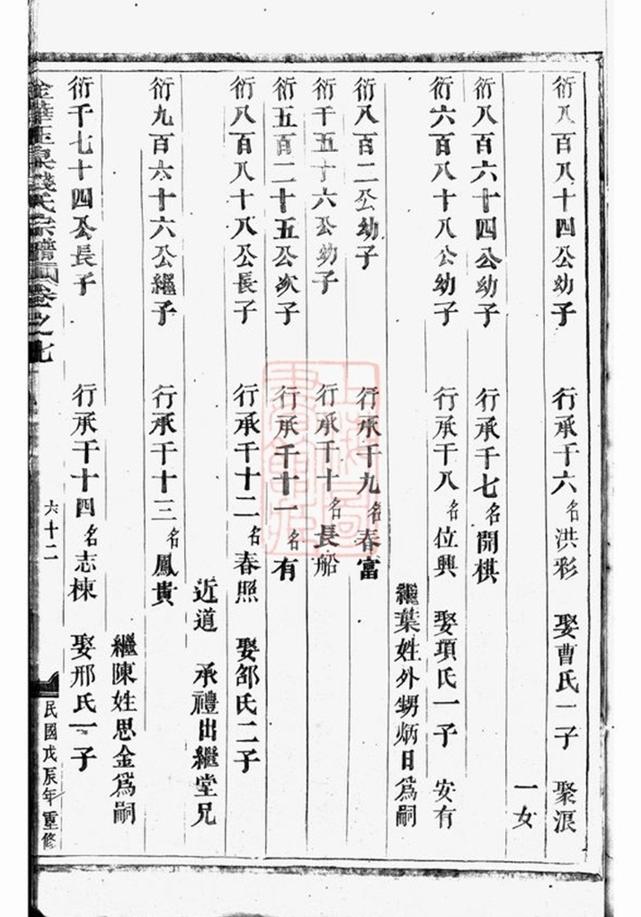 衍八百八十四公幼子 行承千六名洪彩 娶曹氏一子 聚浪
一女
衍八百六十四公幼子 行承千七名開棋
衍六百八十八公幼子 行承千八名位興 娶項氏一子 安有
繼葉姓外甥炳日爲嗣
衍八百二公幼子 行承千九名春富
衍千五十六公幼子 行承千十名長船
衍五百二十五公次子 行承千十一名有
衍八百八十八公長子 行承千十二名春照 娶郃氏二子
近道 承禮出繼堂兄
衍九百六十六公繼子 行承千十三名鳳貴
繼陳姓思金爲嗣
衍千七十四公長子 行承千十四名志棟 娶邢氏一子
金華玉泉錢氏宗譜 卷之七 六十二 民國戊辰年重修